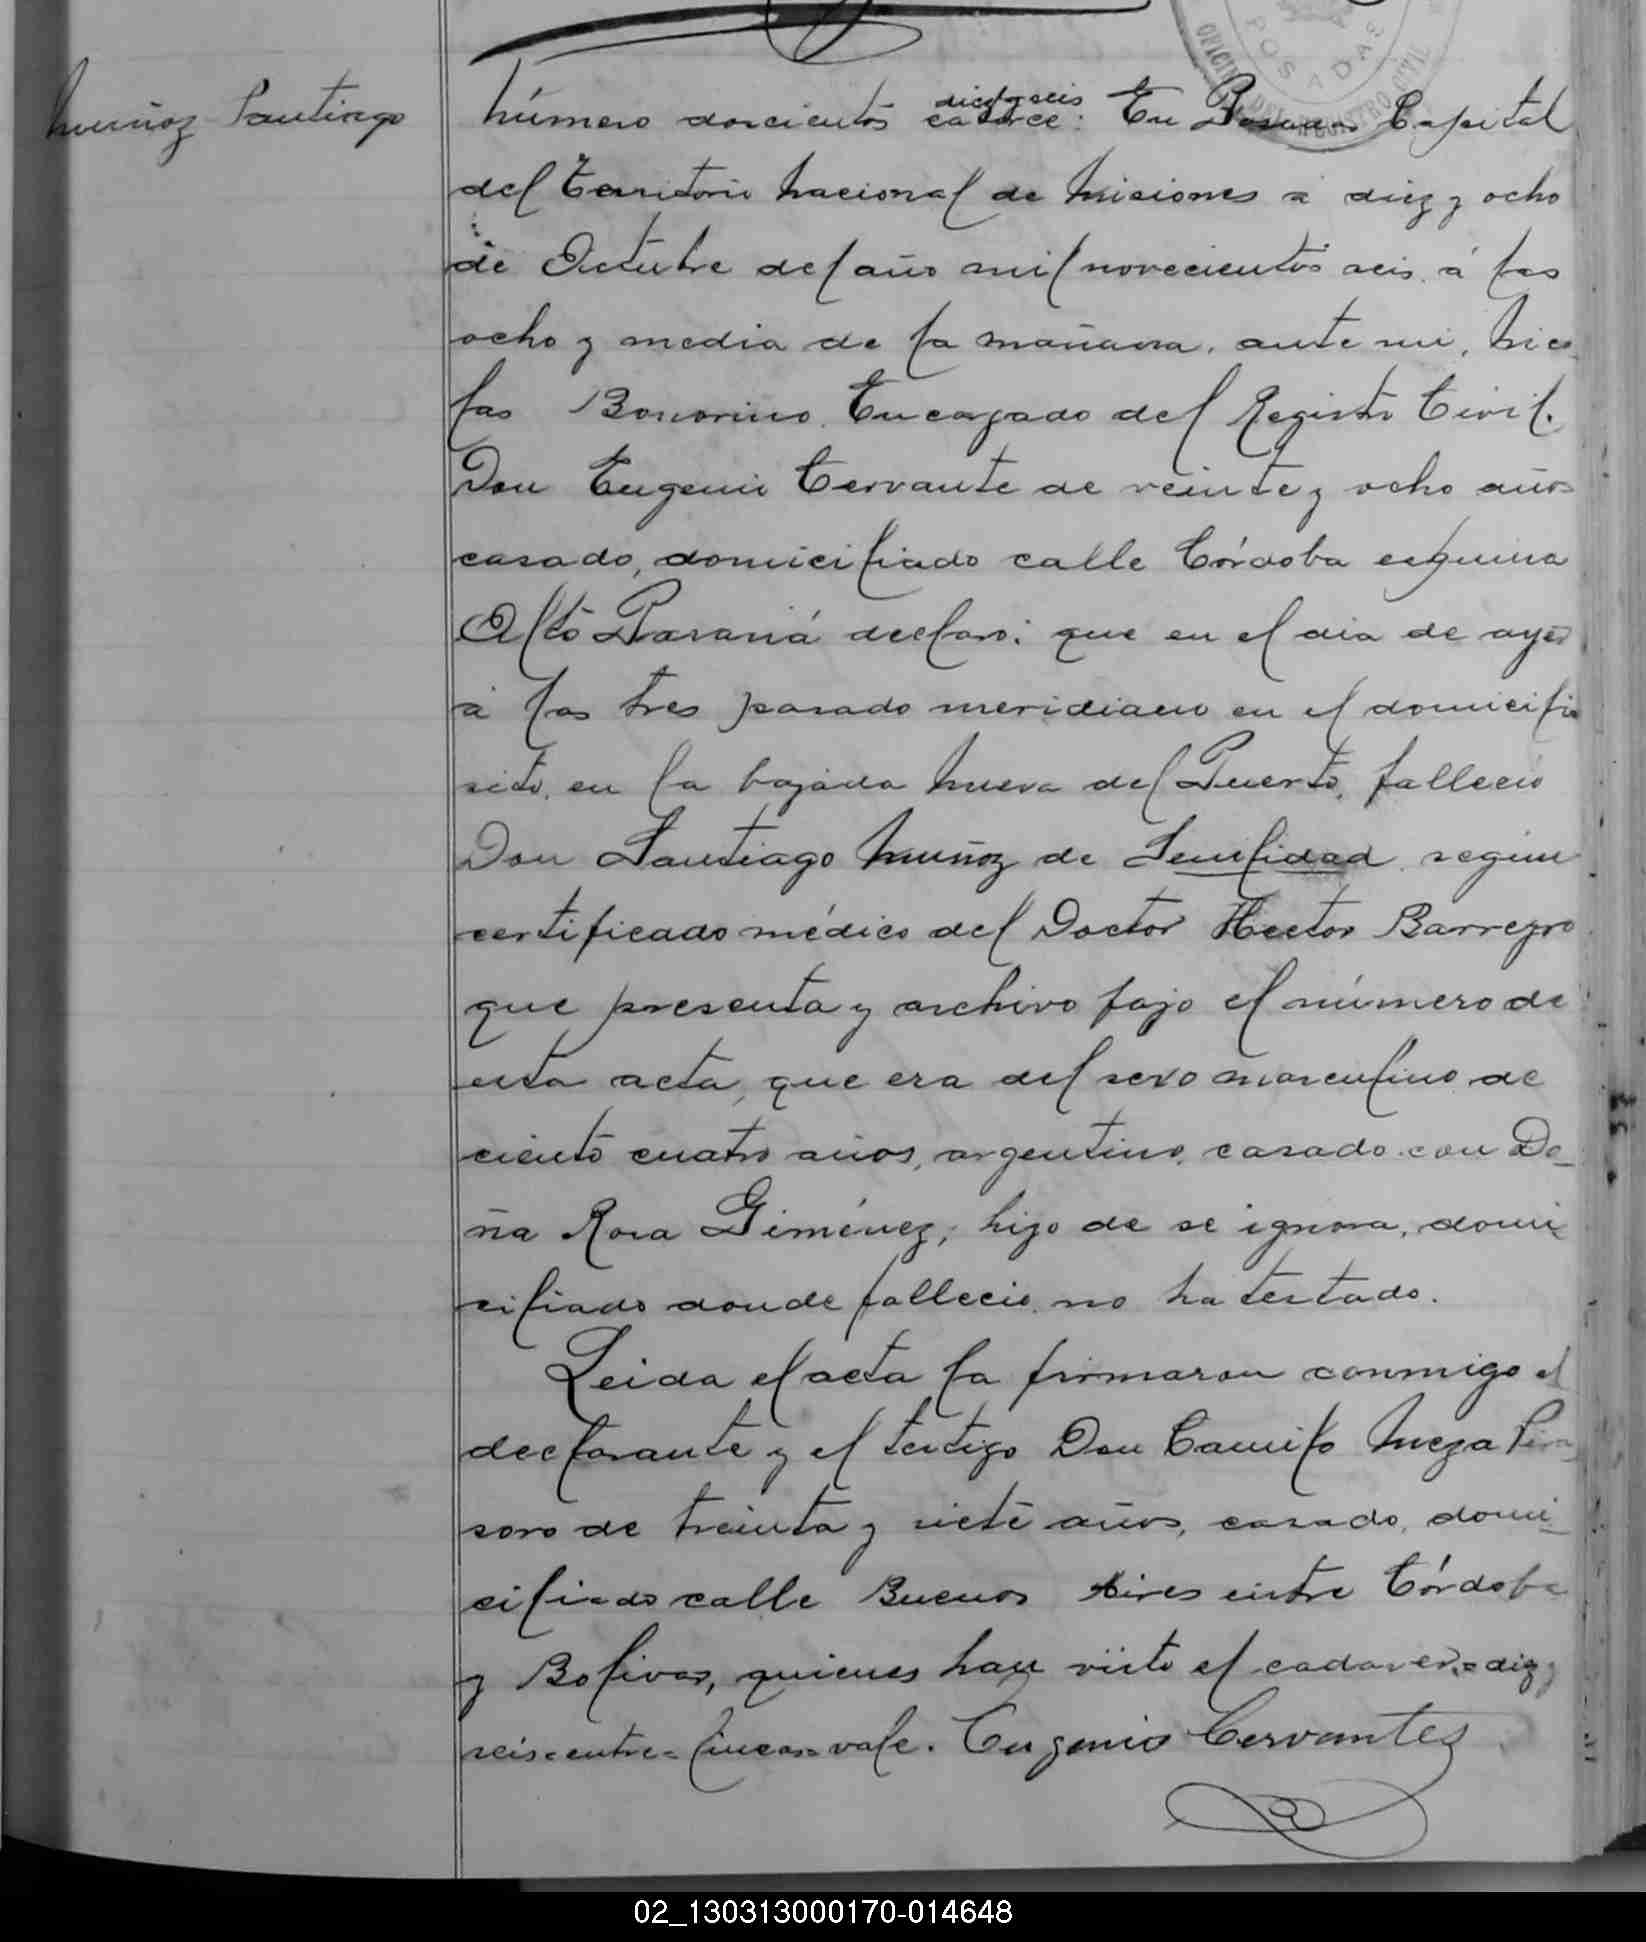 POSADAS
Muñoz Santiago
diez y seis
Número doscientos catorce: En Posadas Capital
del Territorio Nacional de Misiones á diez y ocho
de Octubre del año mil novecientos seis á las
ocho y media de la mañana, ante mi, Nico
las Bonorino Encargado del Registro Civil.
Don Eugenio Cervante de veinte y ocho años
casado, domiciliado calle Córdoba esquina
Alto Paraná declaro: que en el dia de ayer
á las tres pasado meridiano en el domicilio
sito en la bajada nueva del Puerto, falleció
Don Santiago Muñoz de Senilidad segun
certificado médico del Doctor Hector Barreyro
que presenta y archivo bajo el número de
esta acta, que era del sexo masculino de
ciento cuatro años, argentino, casado con Do-
ña Rosa Giménez, hijo de se ignora, domi
ciliado donde fallecio no ha testado.
Leida el acta la firmaron conmigo el
declarante y el testigo Don Camilo Meza
soro de treinta y siete años, casado, domi-
ciliado calle Buenos Aires entre Córdoba
y Bolivar, quienes han visto el cadaver.=diez y
seis=entre=lineas=vale. Eugenio Cervantes
02_130313000170-014648